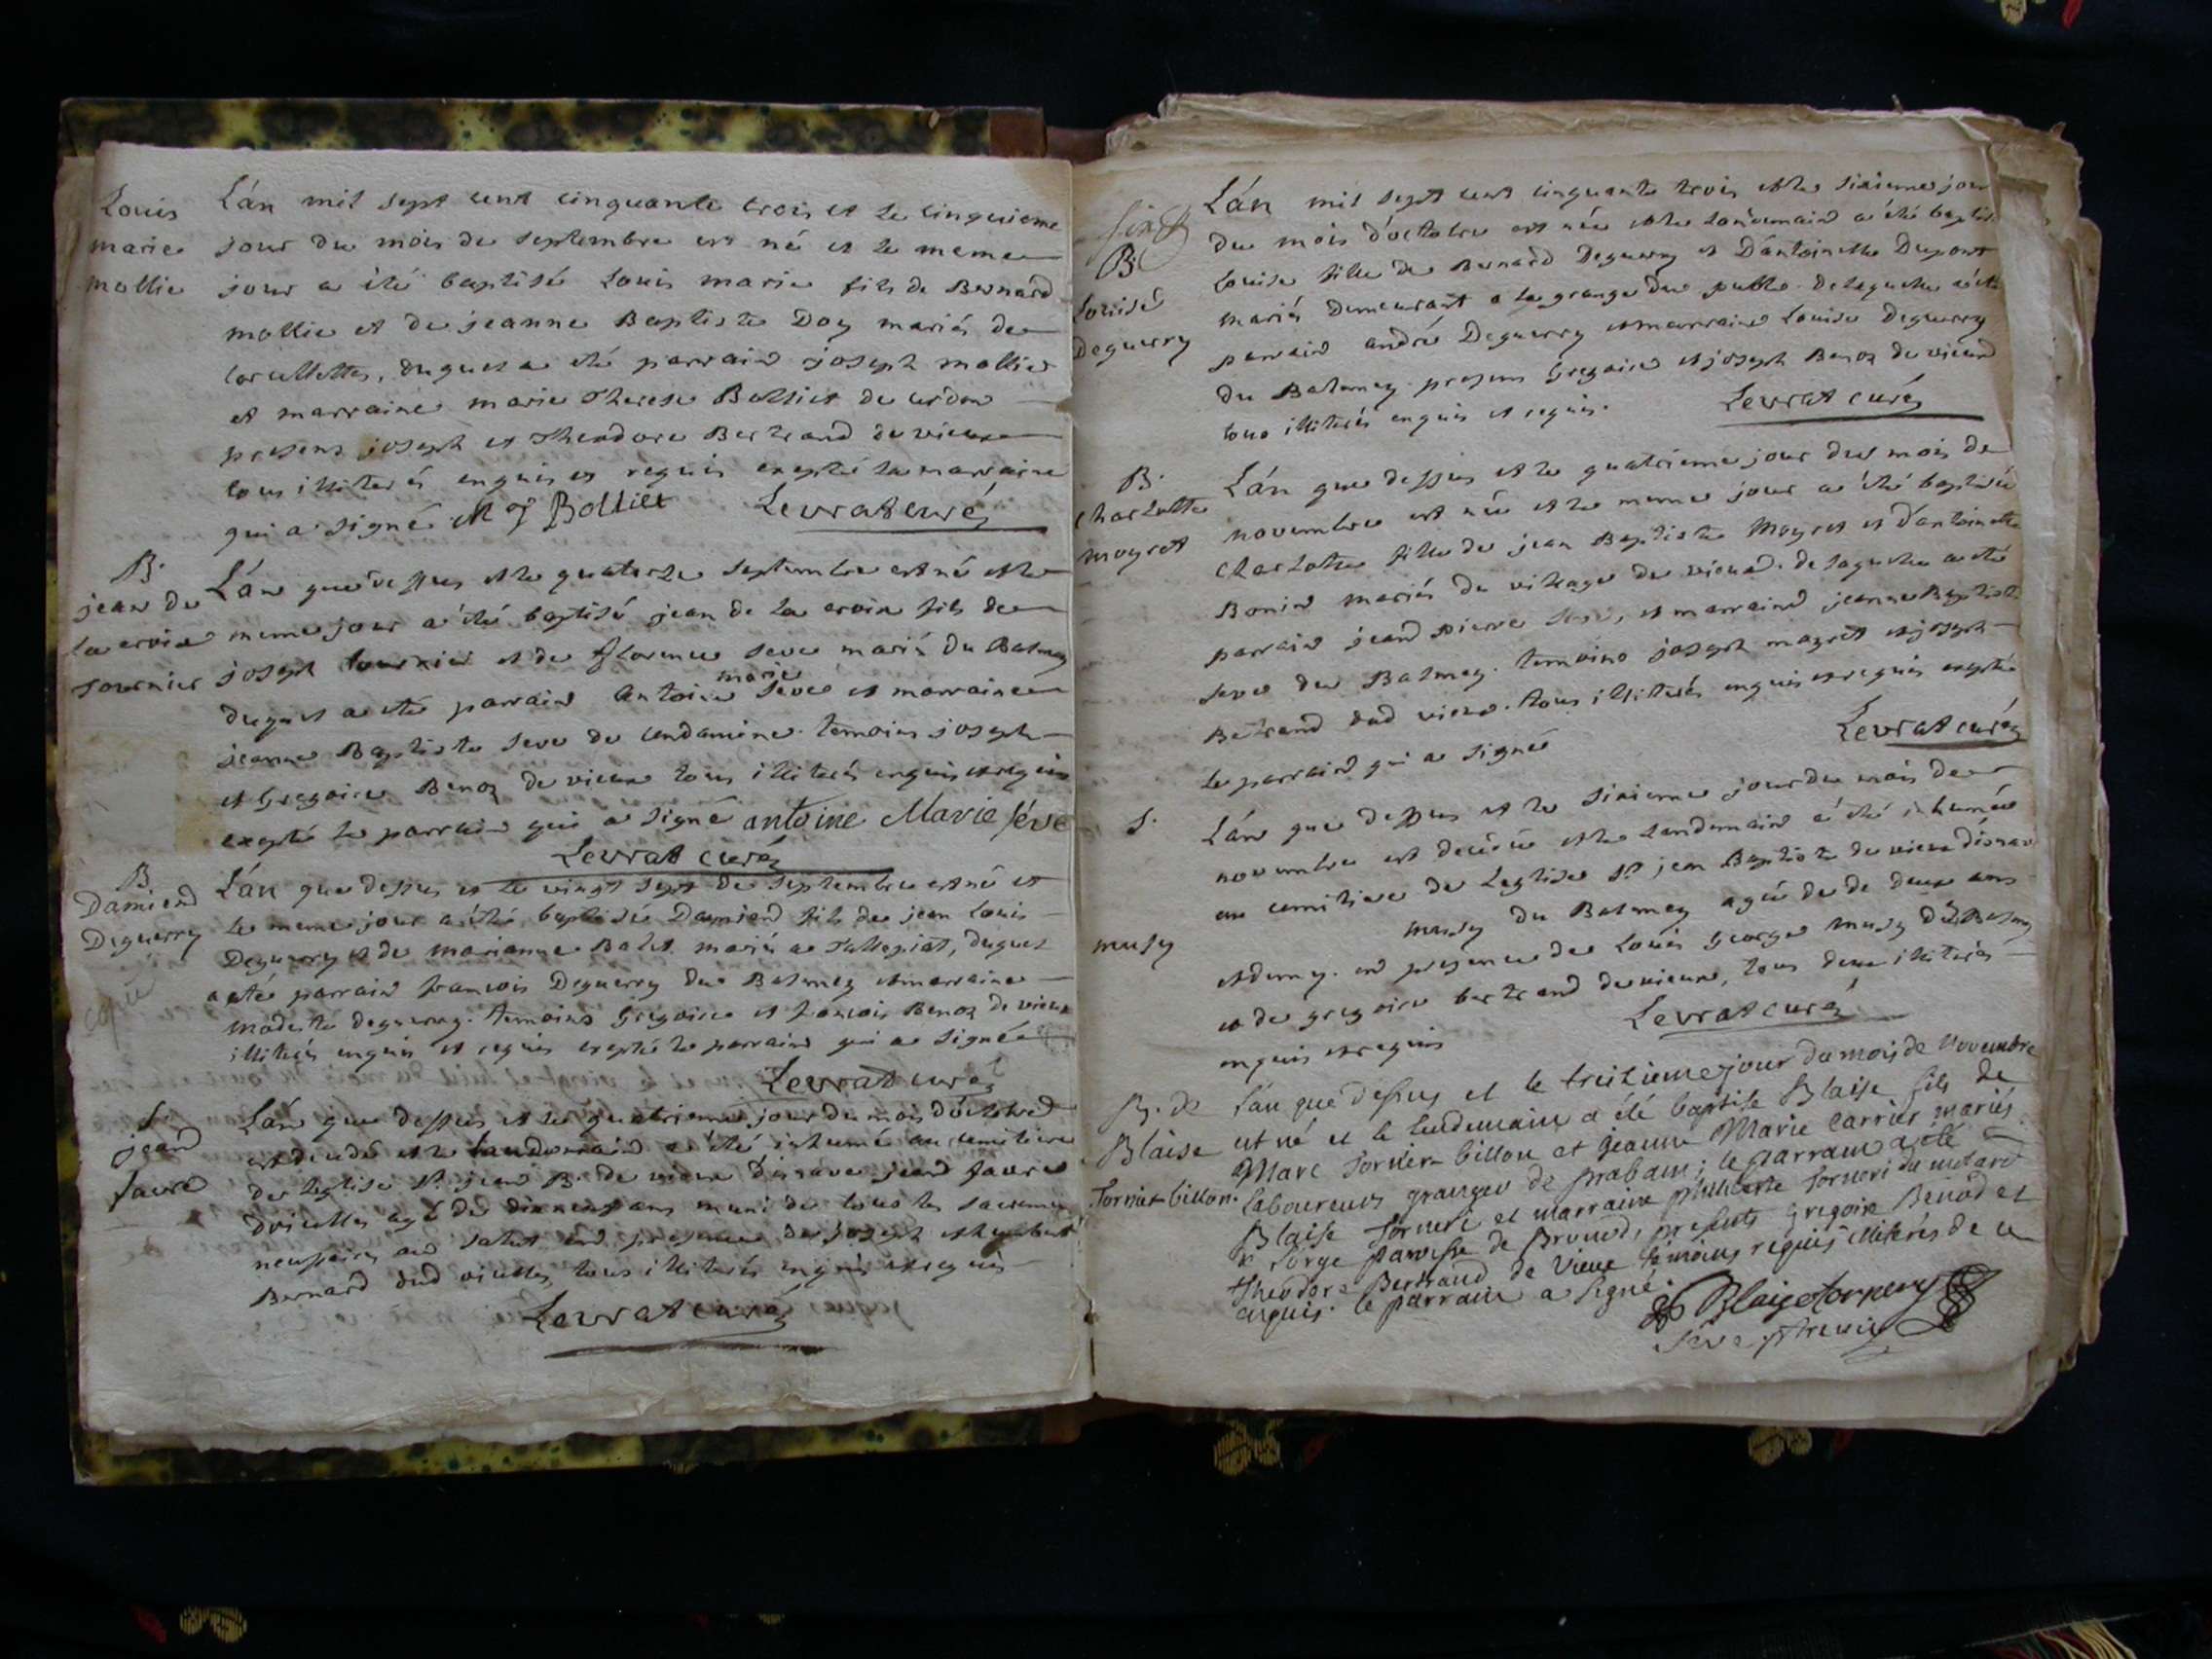 Louis
marie
mollie
Lán mil sept cent cinquante trois et le cinquieme
jour du mois de septembre est né et le meme
jour a été baptisé Louis marie fils de Bernard
mollie et de jeanne Baptiste Doy mariés de
duquel a été parrain joseph mollie
et marraine marie Therese Bolliet de
presens joseph et Theodore Bertrand de vieux
tous illiterés enquis et requis exepté la marraine
qui a signé M J Bolliet Levrat curé
B.
jean de
la croix
tournier
Lán que dessus et le quatorze septembre est né et le
meme jour a été baptisé jean de la croix fils de
joseph tournier et de florence seve mariés du Balmey
duquel a été parrain Antoine marie seve et marraine
jeanne Baptiste seve de cendamine. temoins joseph
et Gregoire Benoz de vieux tous illiterés enquis et requis
exepté le parrain qui a signé antoine Marie séve
Levrat curé
B
Damiend
Deguerry
Lán que dessus et le vingt sept de septembre est né et
le meme jour a été baptisé Damiend fils de jean Louis
Deguerry et de marianne Balet mariés a Tallepiat, duquel
a été parrain francois Deguerry du Balmey et marraine
modeste deguerry. temoins Gregoire et francois Benoz de vieux
illiterés enquis et requis exepté le parrain qui a signé
Levrat curé
S.
jeand
favre
Lán que dessus et le quatrieme jour du mois d'octobre
est decedé et le landemain a été inhumé au cemitiere
de leglise St jean B. de vieux disnave jeand favre
dvielles agé de dixneuf ans muni de tous les sacremens
neussaires au salut end presence de joseph et humbert
Bernard dud vielles tous illiterés enquis et requis
Levrat curé
B
Louise
Deguerry
Lán mil sept cent cinquante trois et le sixieme jour
du mois d'octobre est née et le landemain a été baptisé
Louise fille de Bernard Deguerry et D'antoinette Dupont
mariés demeurant a la grange du pullo. de laquelle a été
parrain andré Deguerry et marraine Louise Deguerry
du Balmey. presens Gregoire et joseph Benoz de vieux
tous illiterés enquis et requis. Levrat curé
B.
charlotte
moyret
Lán que dessus et le quatrieme jour du mois de
novembre est née et le meme jour a été baptisée
charlotte fille de jean Baptiste Moyret et d'antoinette
Bonin mariés du village de vieux. de laquelle a été
parrain jeand pierre seve, et marraine jeanne Baptiste
seve du Balmey. temoins joseph mayret et joseph
Bertrand dud vieux. tous illiterés enquis et requis exepté
le parrain qui a signé Levrat curé
S.
musy
Lán que dessus et le sixieme jour du mois de
novembre est decedée et le landemain a été inhumée
au cemitiere de Leglise St jean Baptiste de vieux disnave
musy du Balmey agée de de deux ans
et demy. end presence de Louis George musy du Balmey
et de gregoire bertrand de vieux, tous deux illiterés
enquis et requis Levrat curé
B. de
Blaise
Tornier-billon.
L'an que dessus et le treizieme jour du mois de Novembre
est né et le lendemain a été baptise Blaise fils de
Marc Tornier-billon et Jeanne Marie Carrier mariés
laboureurs granger de prabain; le parrain a été
Blaise Torneri et marraine philiberte Torneri du molard
forge paroisse de Brenod, presents gregoire Benod et
theodore Bertrand de vieux temoins requis illiterés de ce
enquis. le parrain a signé.
Blaise tornery